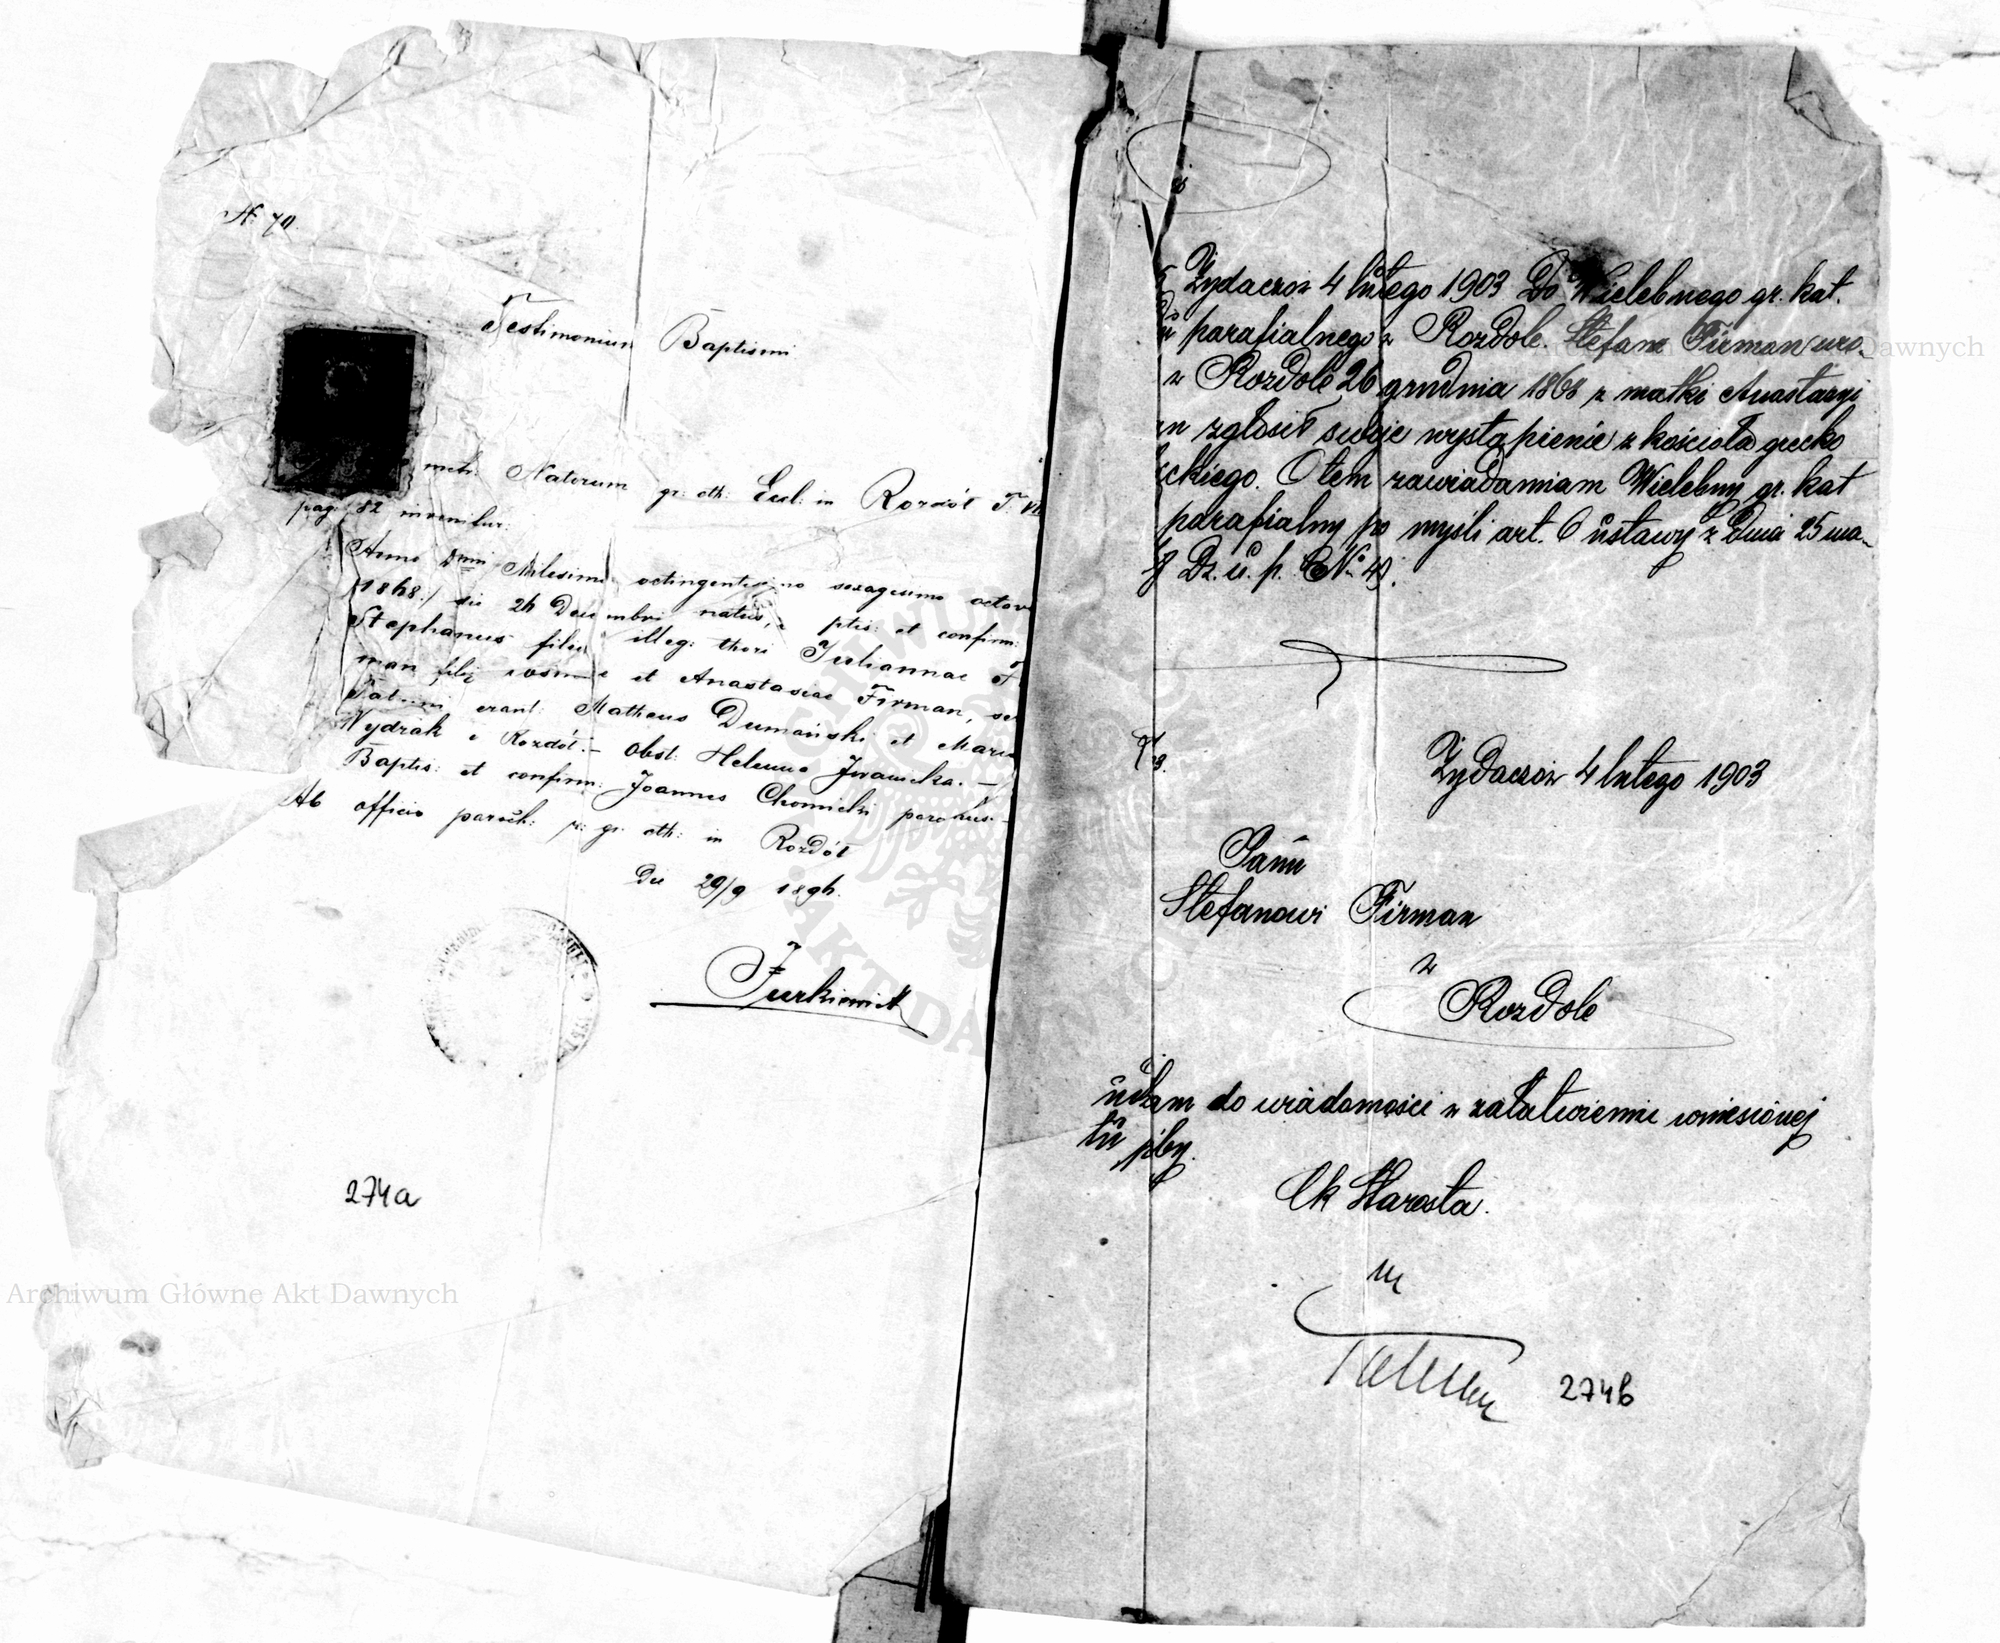 N. 70.
Testimonium Baptismi
metr. Natorum gr: cth: Eccl: in Rozdół T. VII
pag: 82 invenitur:
Anno Dmni Milesimo octingentesimo sexagesimo octavo
/:1868:/ die 26 Decembri natus, ptis: et confirm:
Stephanus filius illeg: thori Julianae
man filię Cosmae et Anastasiae Firman,
Patrini erant: Matheus Dumański et Maria
Wydrak e Rozdół. – Obst: Helena Iwanicka. –
Baptis: et confirm: Joannes Chomicki parochus. –
Ab officio paroch: gr. cth: in Rozdół
Die 29/9 1896.
Jurkiewicz
274a
Żydaczów 4 lutego 1903 Do Wielebnego gr. kat.
parafialnego w Rozdole. Stefan Firman uro-
w Rozdole 26 grudnia 1868 z matki Anastazyi
an zgłosił swoje wystąpienie z kościoła grecko
ckiego. O tem zawiadamiam Wielebny gr. kat
parafialny po myśli art. 6 ustawy z dnia 25 ma-
8 Dz. u. p. No 49.
Żydaczów 4 lutego 1903
Panu
Stefanowi Firman
w
Rozdole
do wiadomości w załatwieniu wniesionej
tu
Ck Starosta.
274b
Archiwum Główne Akt Dawnych